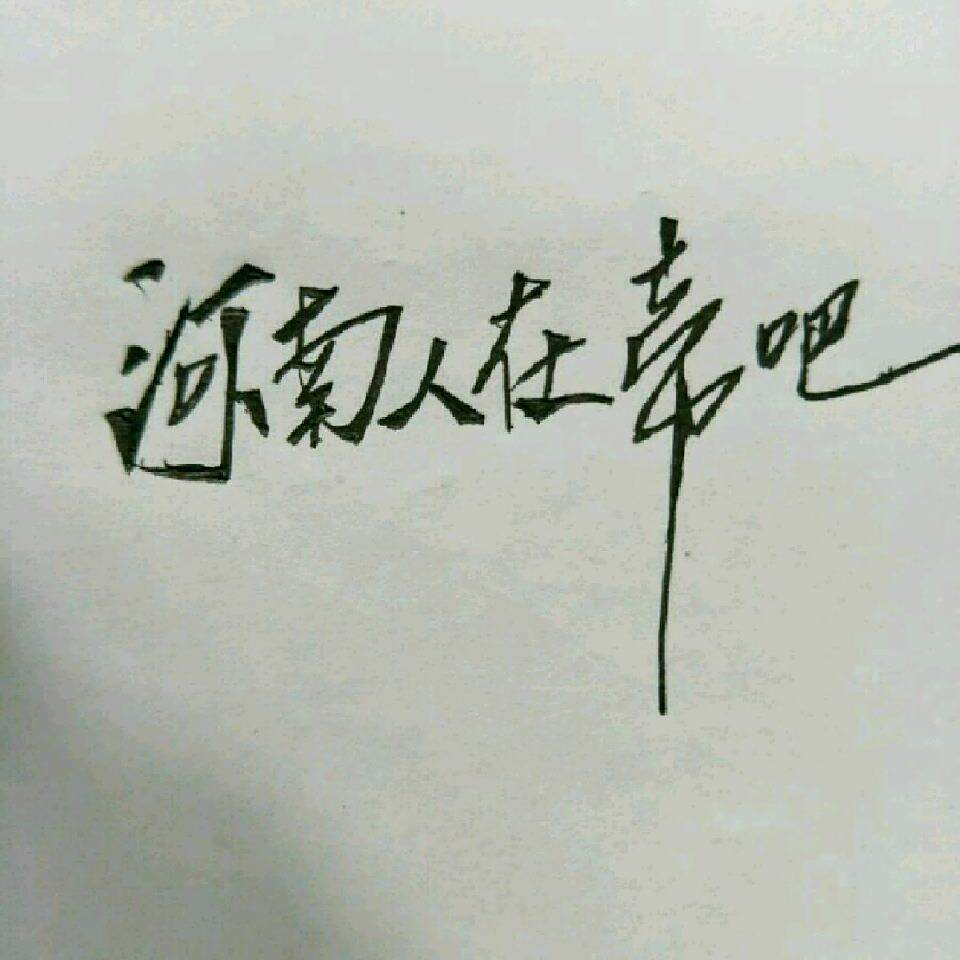 河南人在帝吧